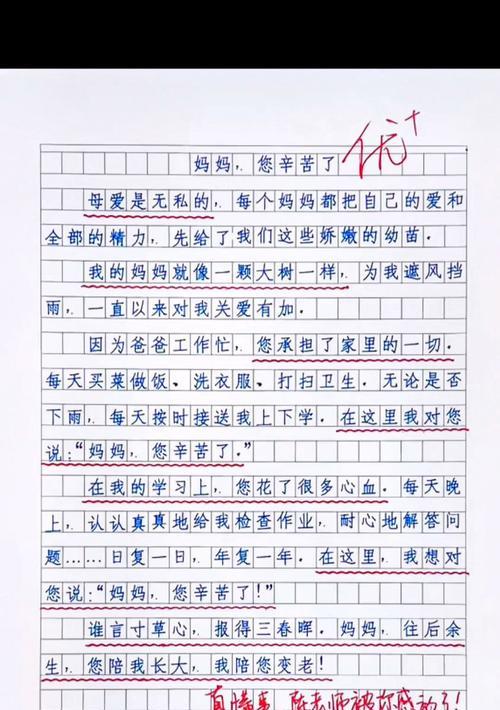 妈妈,您辛苦了
优+
母爱是无私的,每个妈妈都把自己的爱和
全部的精力,先给了我们这些娇嫩的幼苗.
我的妈妈就像一颗大树一样,为我遮风挡
雨,一直以来对我关爱有加.
因为爸爸工作忙,您承担了家里的一切.
每天买菜做饭、洗衣服、打扫卫生.无论是否
下雨,每天按时接送我上下学.在这里我对您
说:“妈妈,您辛苦了.”
在我的学习上,您花了很多心血.每天晚
上,认认真真地给我检查作业,耐心地解答问
题……日复一日,年复一年.在这里,我想对
您说:“妈妈,您辛苦了!”
谁言寸草心,报得三春晖.妈妈,往后余
生,您陪我长大,我陪您变老!
真懂事,陈老师被你感动了!